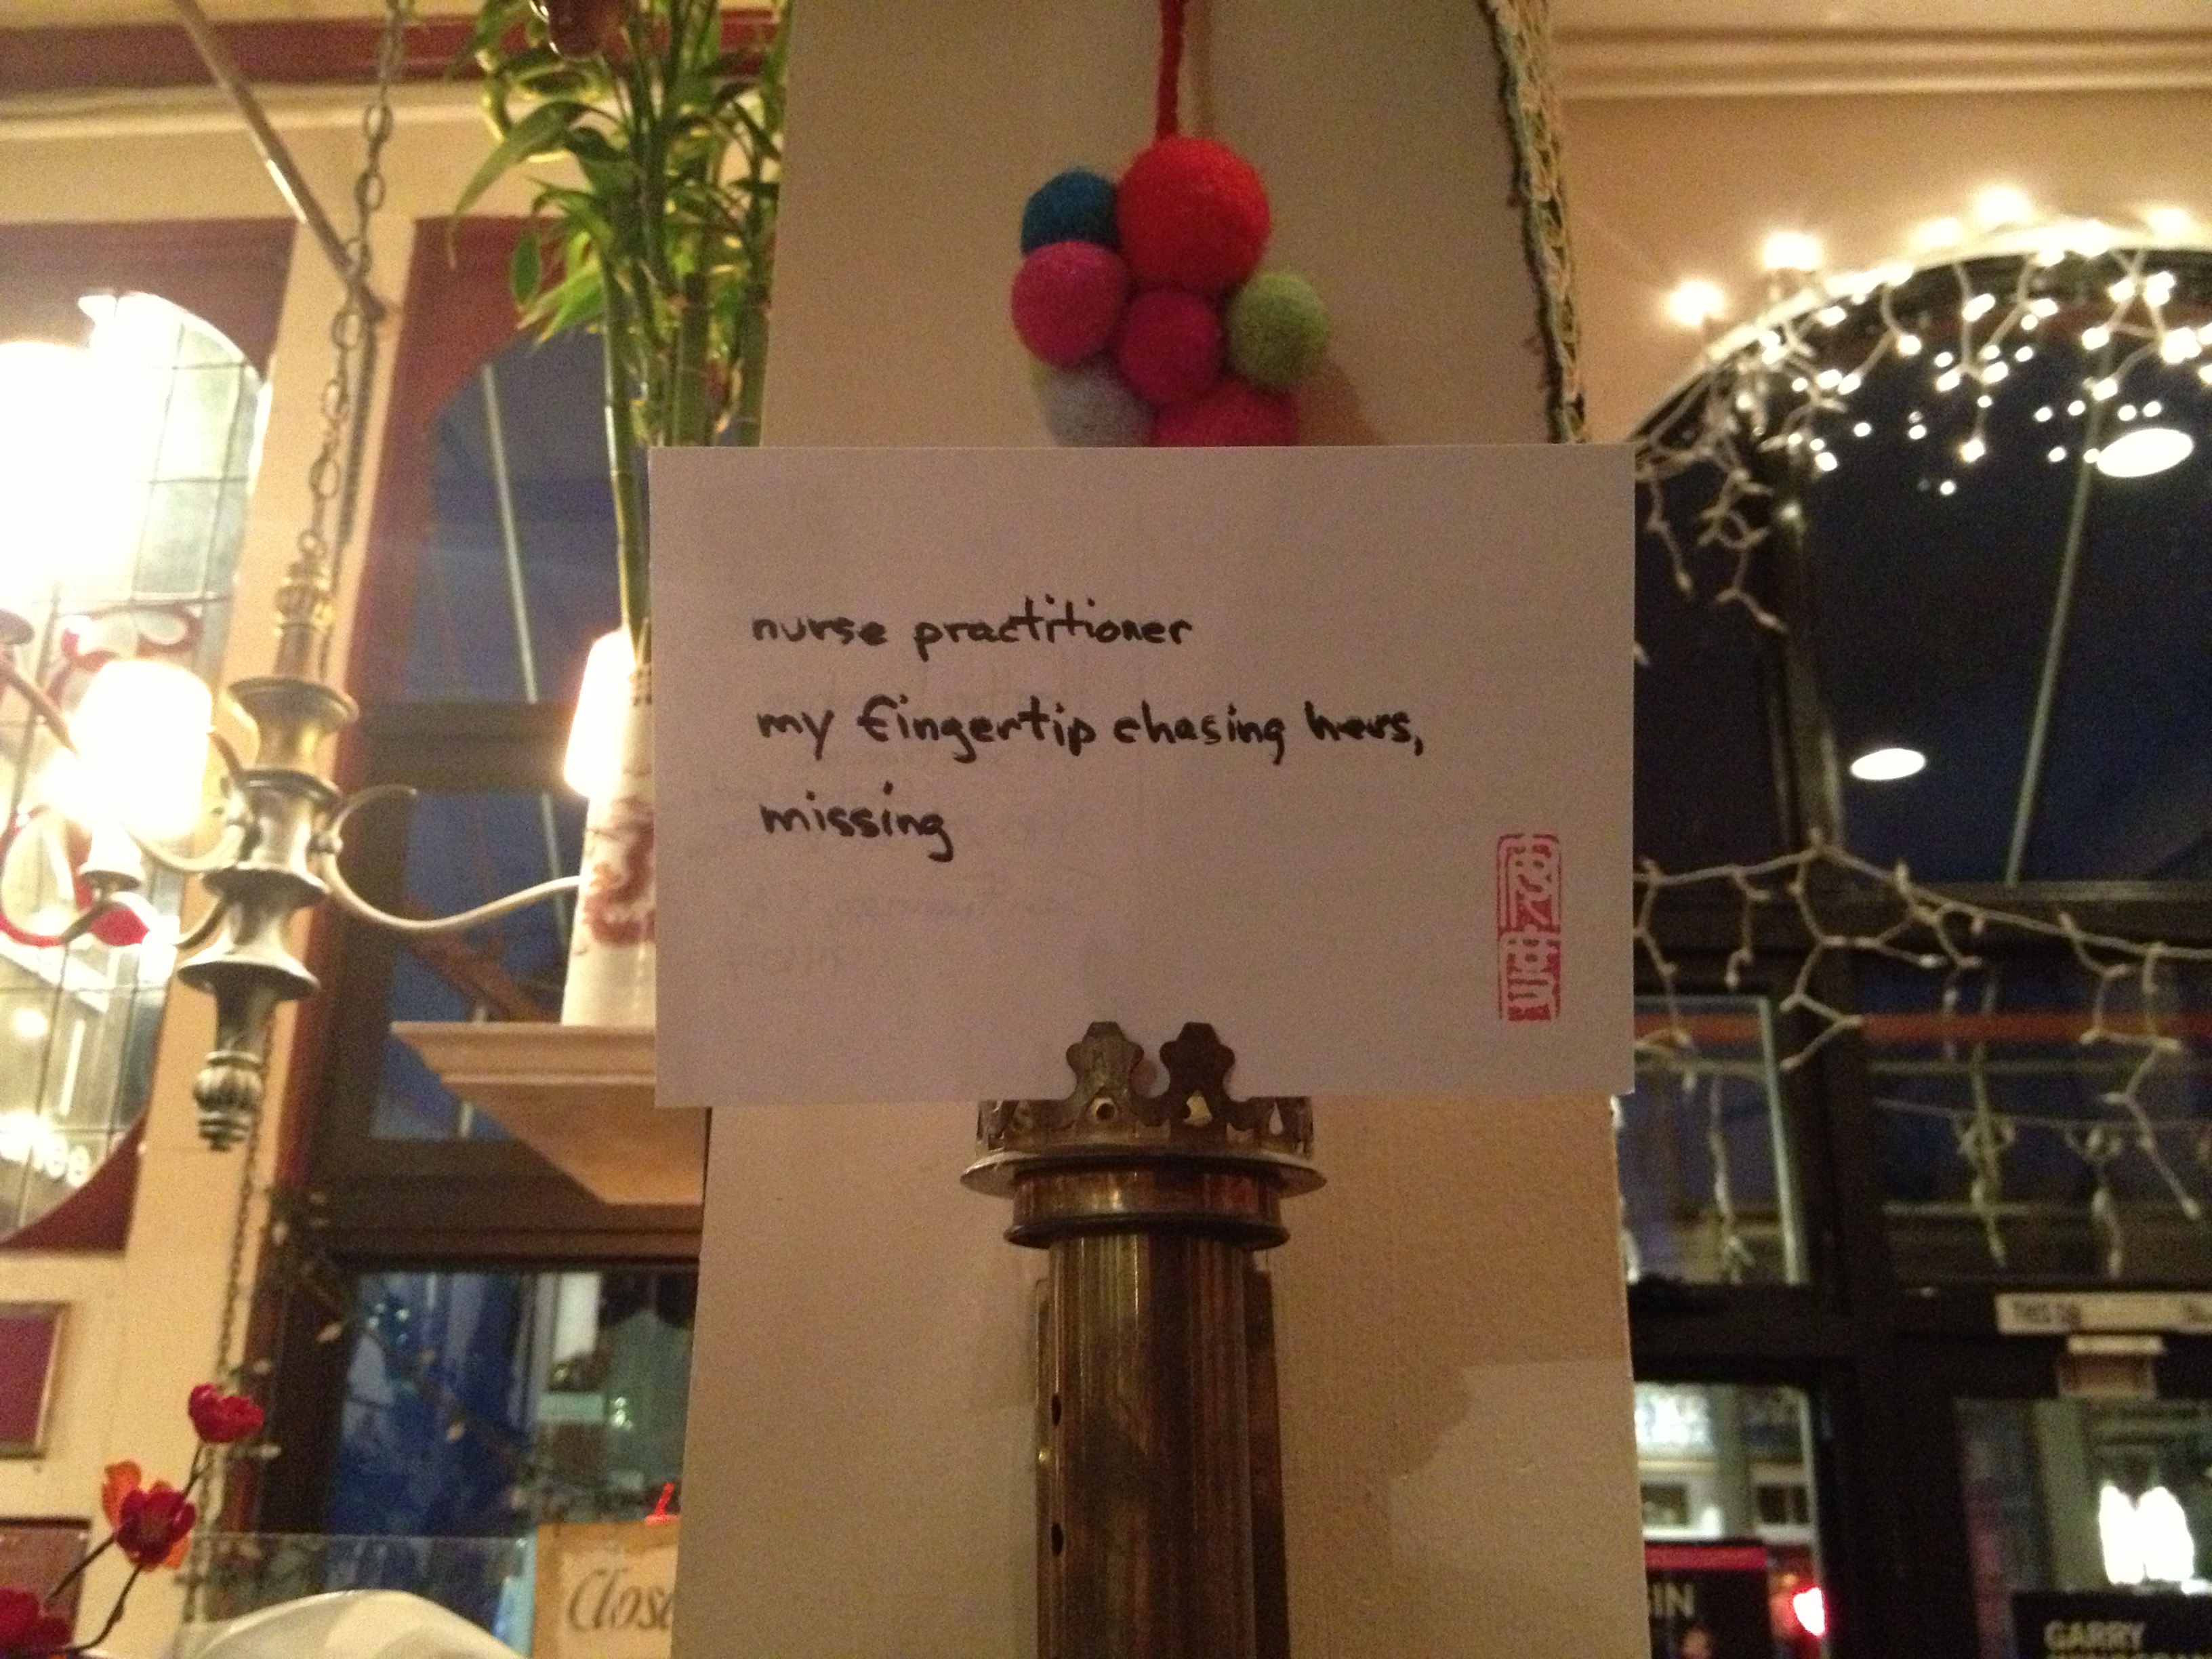 nurse practitioner
my fingertip chasing hers,
missing
GARRY